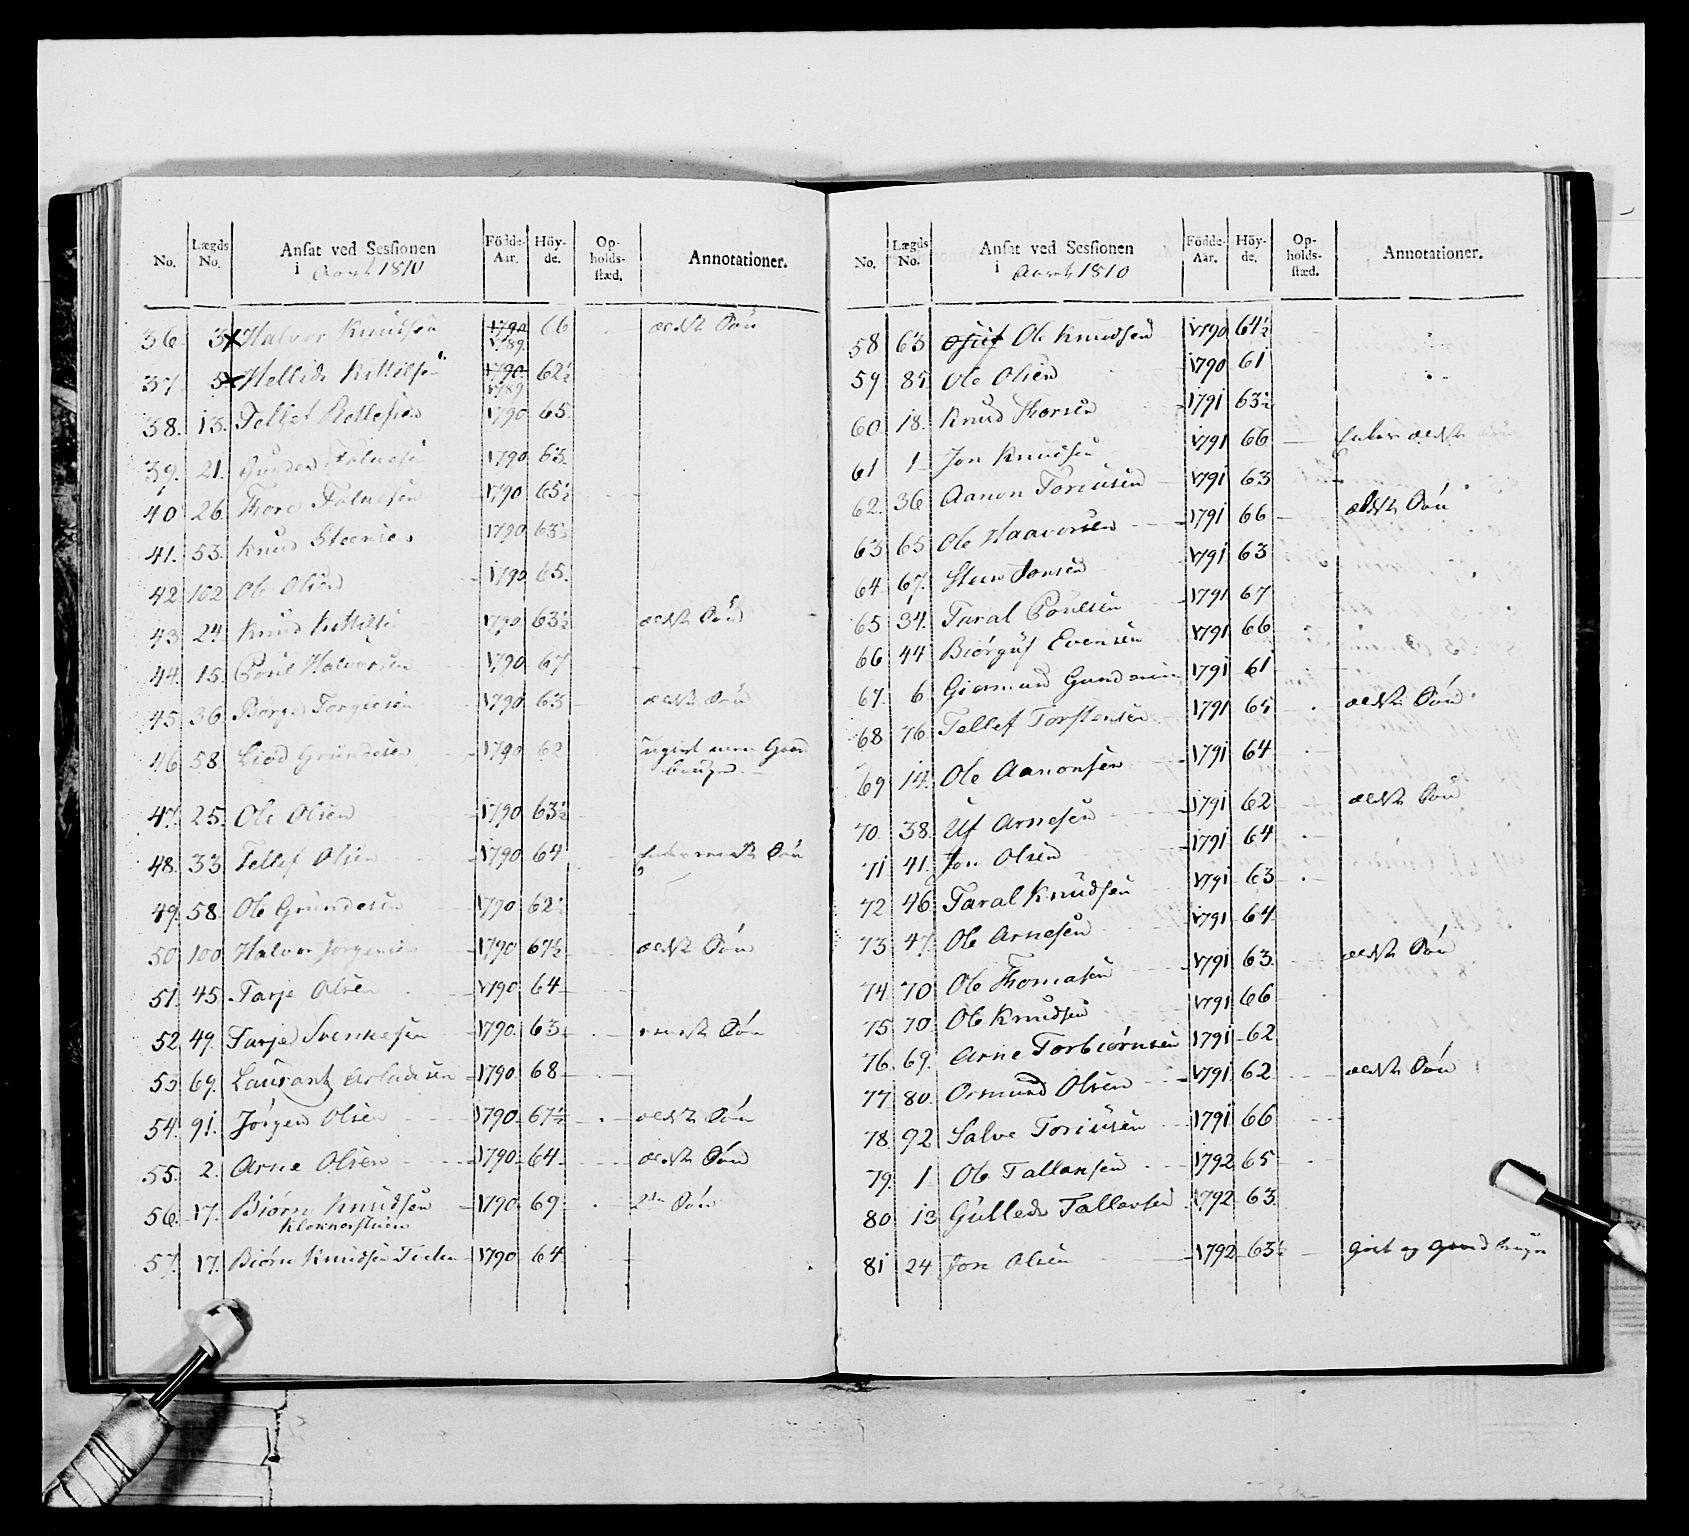 No. Lægds No. Ansat ved Sessionen i Aaret 1810 Födde-Aar. Höy-de. Op-holds-stæd. Annotationer.
36. 3 Halvor Knudsen 1790 1789 66 ældste Søn
37. 5 Kittilsen 1790 1789 62½
38. 13. Tellef 1790 65
39. 21. 1790 63
40 26. Thore 1790 65½
41. 53. Knud Steensen 1790 63½
42 102 Ole Olsen 1790 65.
43. 24 Knud Kittilsen 1790 63½ ældste Søn
44. 15. Poul Halvorsen 1790 67
45. 36. Børge Torgiusen 1790 63 ældste Søn
46 58. Liød Gundesen 1790 62
47. 25. Ole Olsen 1790 63½
48. 33 Tellef Olsen 1790 64 Søn
49. 58. Ole Gundesen 1790 62½
50. 100 Halvor Jørgensen 1790 67½ ældste Søn
51. 45. Tarje Olsen 1790 64
52 49. Tarje Svenkesen 1790. 63 Søn
53 69. Laurantz 1790 68
54. 91. Jørgen Olsen 1790 67½ ældste Søn
55. 2. Arne Olsen 1790 64 ældste Søn
56. 17. Biørn Knudsen 1790 69 2den Søn
57. 17. Biørn Knudsen 1790 64
No. Lægds No. Ansat ved Sessionen i Aaret 1810 Födde-Aar. Höy-de. Op-holds-stæd. Annotationer.
58 63 Ole Knudsen 1790 64½
59 85 Ole Olsen 1790 61
60. 18. Knud Thorsen 1791 63½
61 1 Jon Knudsen 1791 66 ældste Søn
62. 36 Aanon Toriusen 1791 63
63 65 Ole Haavorsen 1791 66 ældste Søn
64 67. Steen Jonsen 1791 63
65 34. Taral Poulsen 1791 67
66 44 Biørguf Evensen 1791 66
67. 6 Giermund Gundersen 1791 61
68 76 Tellef Torstensen 1791 65 ældste Søn
69 14. Ole Aanonsen 1791 64
70. 38. Uf Arnesen 1791 62 ældste Søn
71 41. Jon Olsen 1791 64
72 46 Taral Knudsen 1791 63
73 47. Ole Arnesen 1791 64
74 70 Ole Thomasen 1791 63 ældste Søn
75 70 Ole Knudsen 1791 66
76. 69. Arne Torbiørnsen 1791 62
77 80. Ormund Olsen 1791 62 ældste Søn
78. 92 Salve Toriusen 1791 66
79. 1 Ole Tallaksen 1792 65
80 13 Gullede Tallaksen 1792 63
81 24 Jon Olsen 1792 63½ Gift og